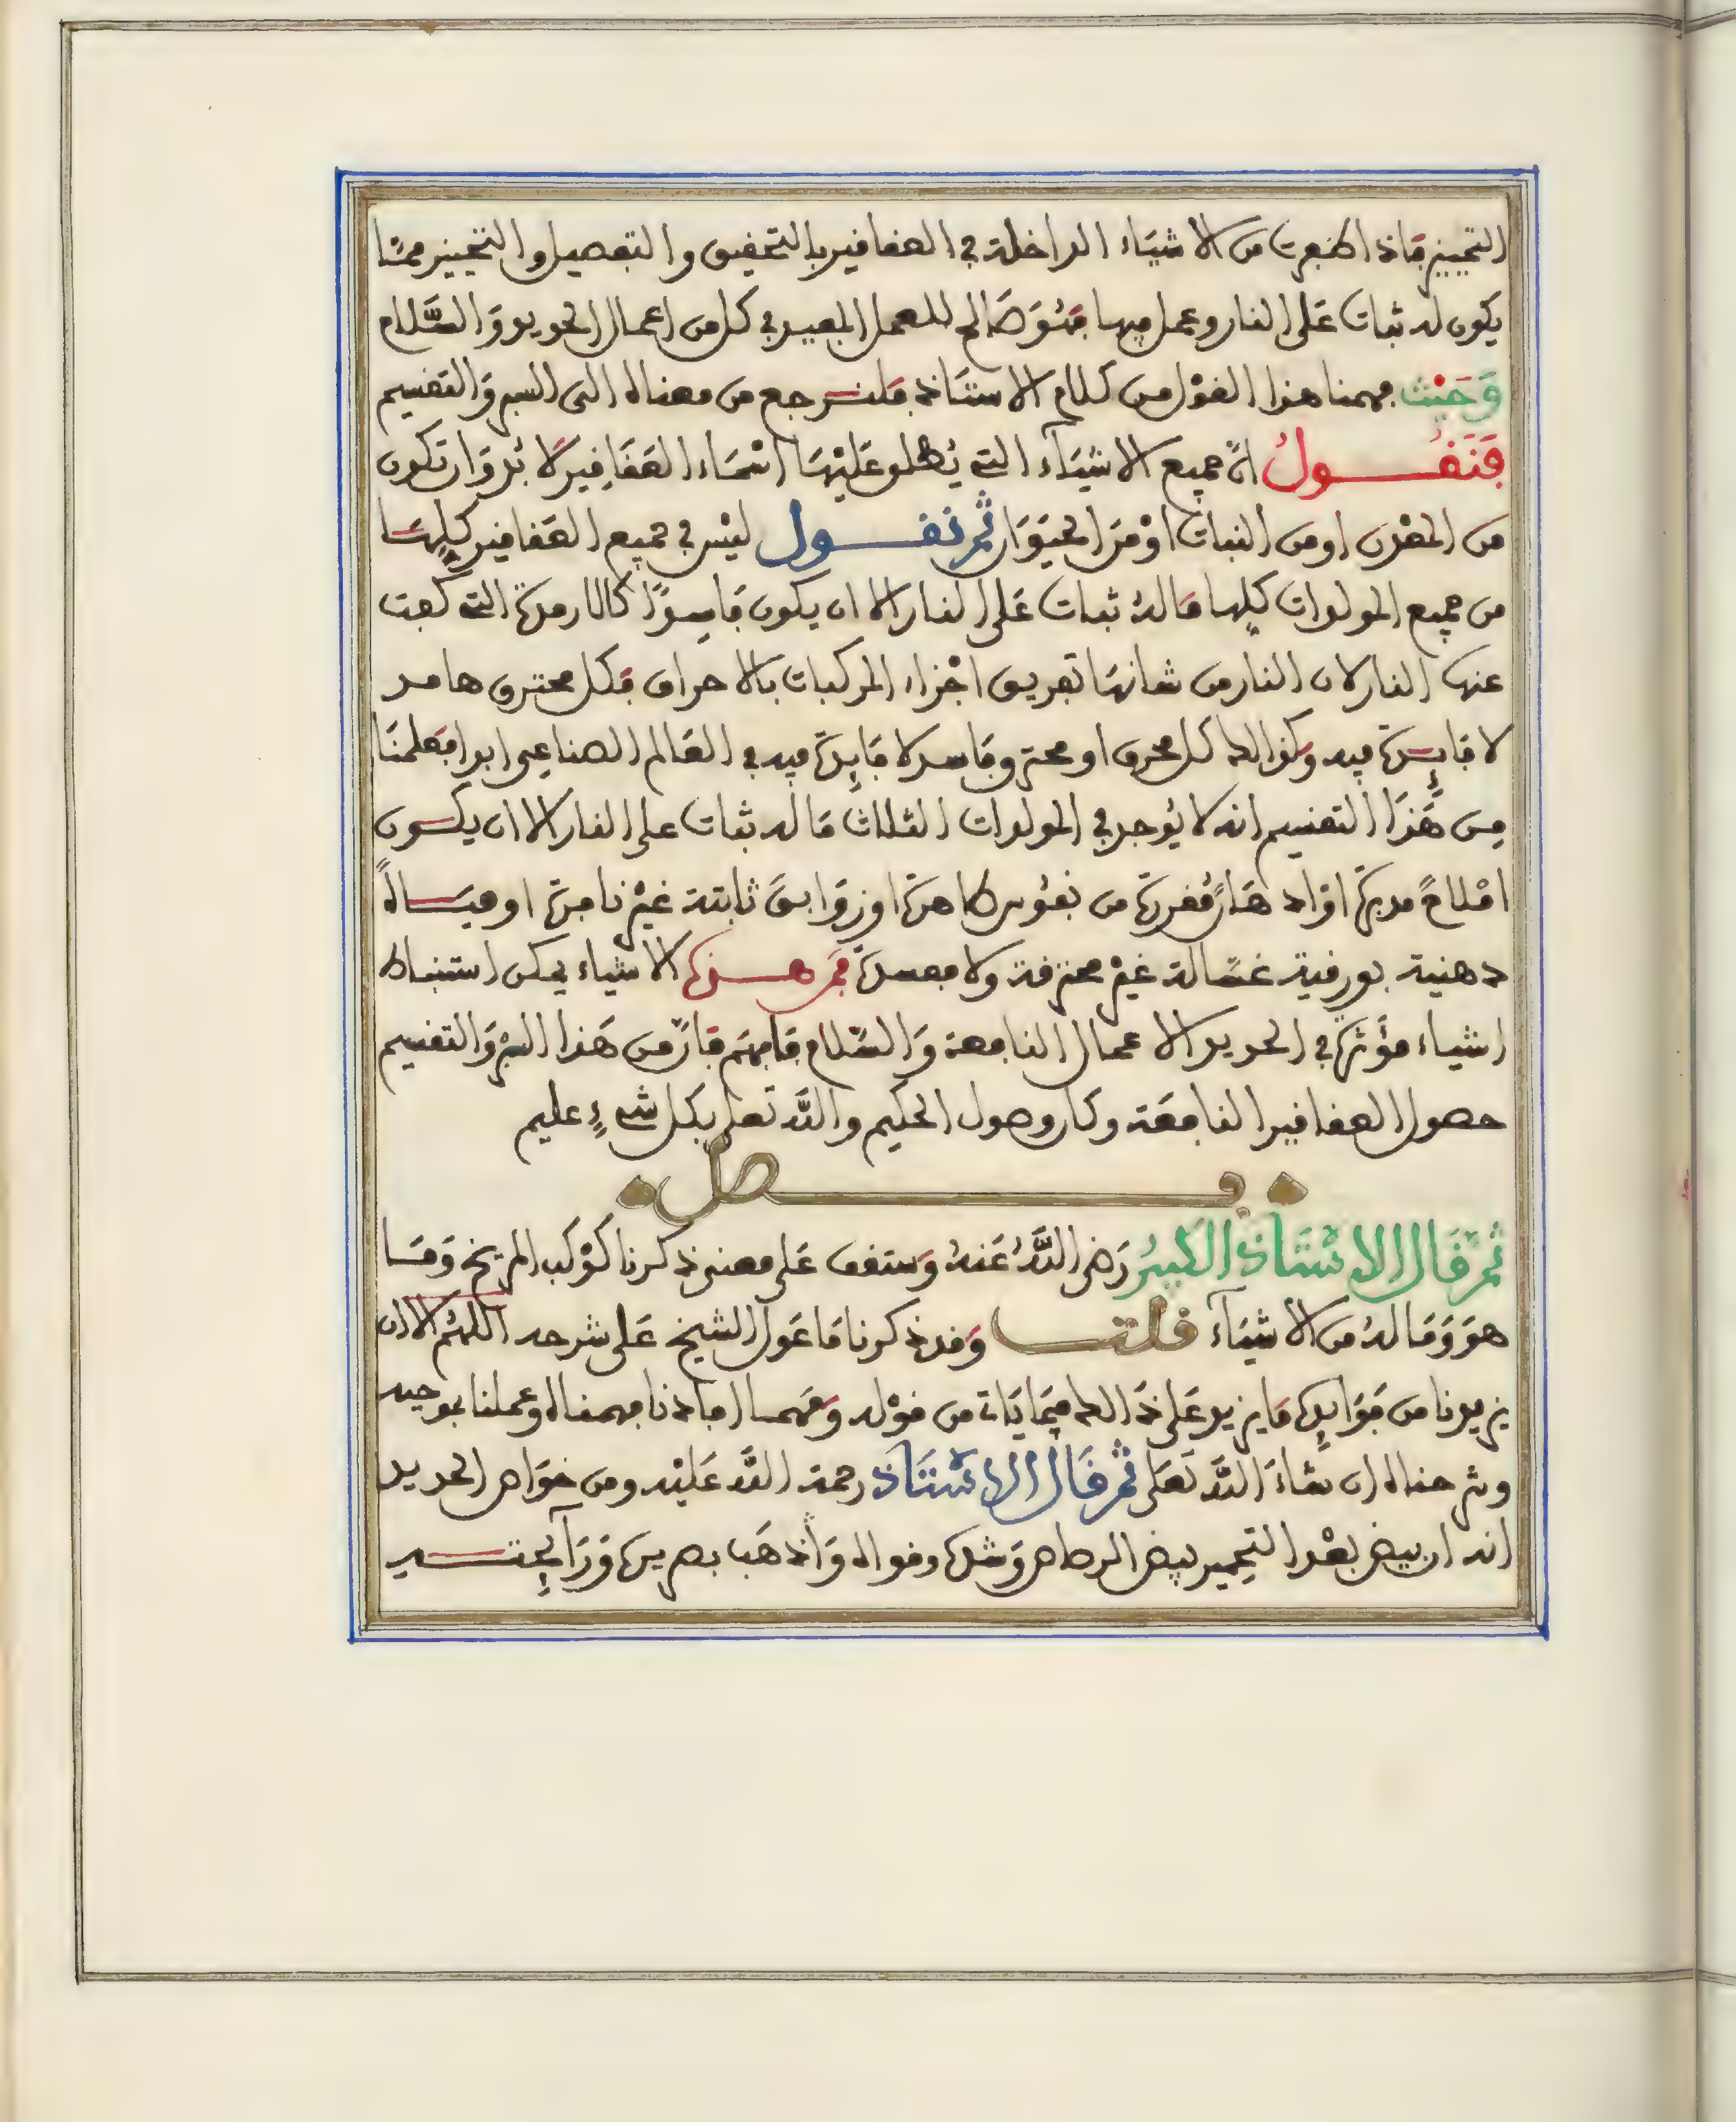 التمييز فاذا ظفرت من الاشياء الداخلة في العقاقير بالتحقيق والتفصيل والتمييز ممّا
يكون له ثبات عَلى النار وعمل فيها فهُوَ صَالح للعمل المفيد في كل من اعمال الحديد وَالسَّلام
وَحَيْث فهمنا هذا القوْل من كلام الاستَاذ فلنرجع من معناه الى السبر وَالتقسيم
فَنَقُول انّ جميع الاشيَآء التي يُطلق عَليْهَا اسْمَاء العَقَاقِير لا بُد وَان تكون
من المعْدن او من النبات اوْ مَن الحيَوَان ثم نقول ليْس في جميع العَقاقير كلِهَا
من جميع المولدات كلها مَا لهُ ثبات عَلى النار الا ان يكون فَاسِدًا كالارمدة التي كفت
عنها النار لان النار من شانهَا تفريق اجْزاء المركبات بالاحراق فكل محترق هامد
لا فائِدة فيه وكذالك كل محرق او محترق فاسد لا فائِدة فيه في العَالم الصناعِي ابدا فعَلمنَا
مِن هَٰذَا التقسيم انه لا يُوجد في المولدات الثلاث مَا له ثبات على النار الا ان يكون
امْلاحً مدبرة اوْ ادهَانً مقررة من نفوس طاهرة او زوَابق ثابتة غيْر نافرة او ميَاهً
دهنية بورقية غسّالة غيْر محترقة ولا مفسدة فمن هذه الاشياء يمكن استنباط
اشياء مؤَثرة في الحديد الاعمال النافعة وَالسَّلام فافهَم فانّ من هَذا السبْر وَالتقسيم
حصول العقاقير النافعَة وكان وصول الحكيم والله تعلى بكل شيءٍ عليم
فصل
ثم قَال الاسْتَاذ الكبيرُ رَضى اللَّهُ عَنهُ وَستقف عَلى معنى ذكرنا كوْكب المريخ وَمَا
هوَ وَمَا لهُ من الاشيَآء قلت وَقد ذكرنا مَا عَول الشيخ عَلى شرحه اللهُم الا ان
يزيدنا من فوَائِده مَا يزيد عَلى ذَالك فيمَا يَات من قوْله وَمهما افادنا فهمناه وعملنا بموجبه
وشرحناه ان شاءَ الله تعَلى ثم قَال الاسْتَاذ رحمة الله عَليْه ومن خوَاص الحديد
انه ان بيض بعْد التحمير بيض الرصاص وَشده وقواه وَان ذهَب بصريره وَرَآئِحته